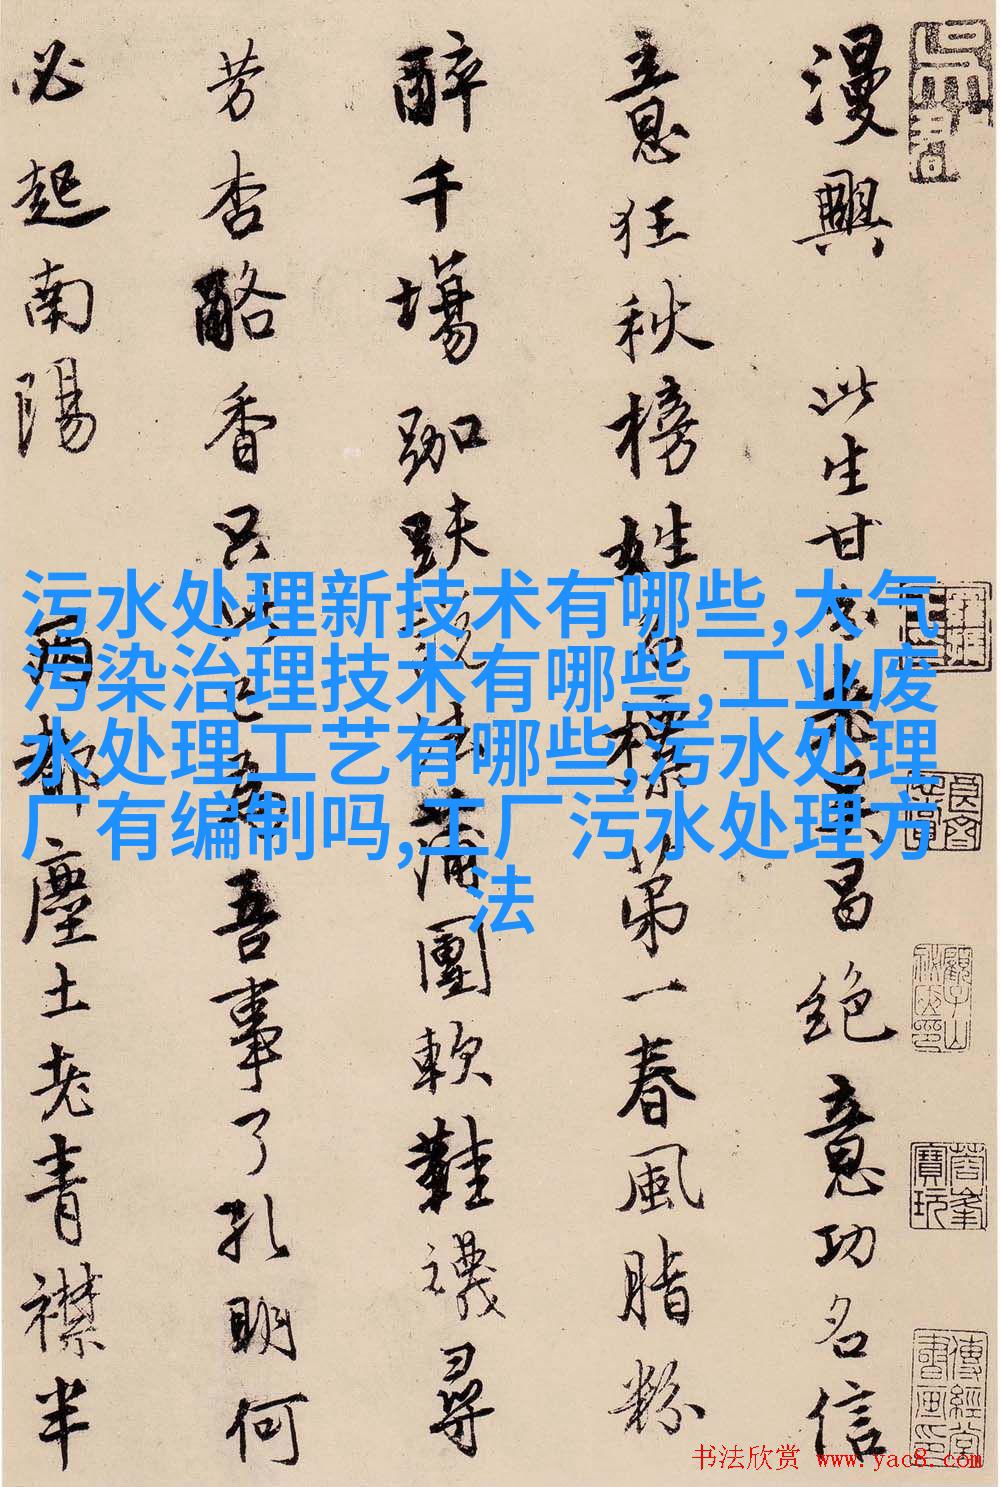 漫興 此生甘 昌絕意功名信
意狂秋榜姓名標第一春風脂粉
醉千場跏趺說法蒲團軟鞋襪尋
芳杏酪香只此已為吾事了孔明何
必起南陽 兩都塵土老青襟半
污水处理新技术有哪些,大气
污染治理技术有哪些,工业废
水处理工艺有哪些,污水处理
厂有编制吗,工厂污水处理方
法
书法欣赏 www.yac8.com